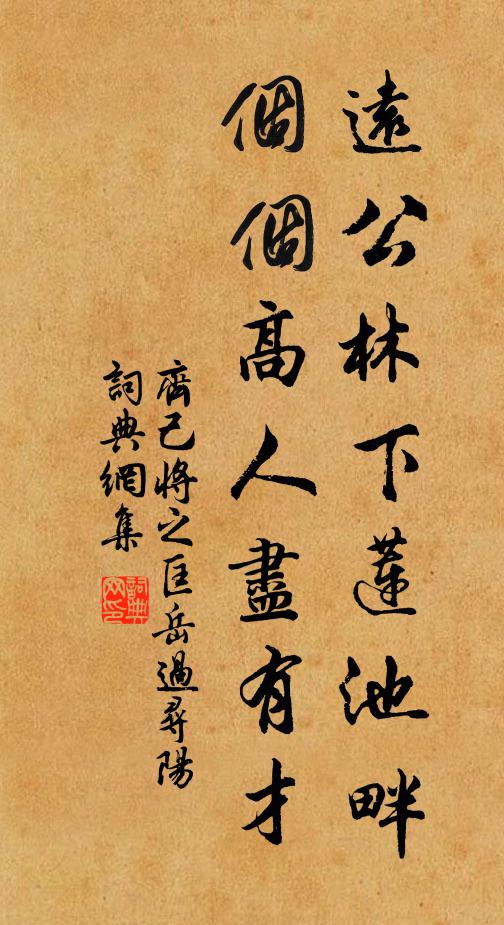 遠公林下蓮池畔
個個高人盡有才
齊己將之匡岳過尋陽
詞典網集
詞典網印